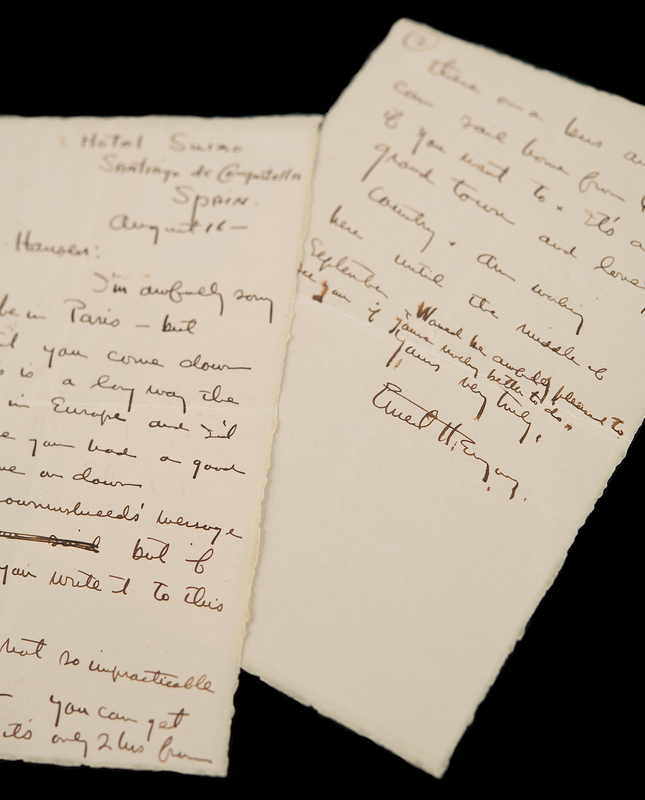 Hotel Suizo
Santiago de Compostella
Spain.
August 16 —
Hansen:
I'm awfully sorry
be in Paris — but
you come down
is a long way the
in Europe and I'd
you had a good
on down
message
but if
you write it to this
not so impracticable
you can get
it's only 2 hrs from
②
there on a bus
can sail home from
if you want to. It's a
grand town and
country. Am working
here until the middle of
September. Would be awfully pleased to
see you if you've nothing better to do.
Yours very truly,
Ernest Hemingway.